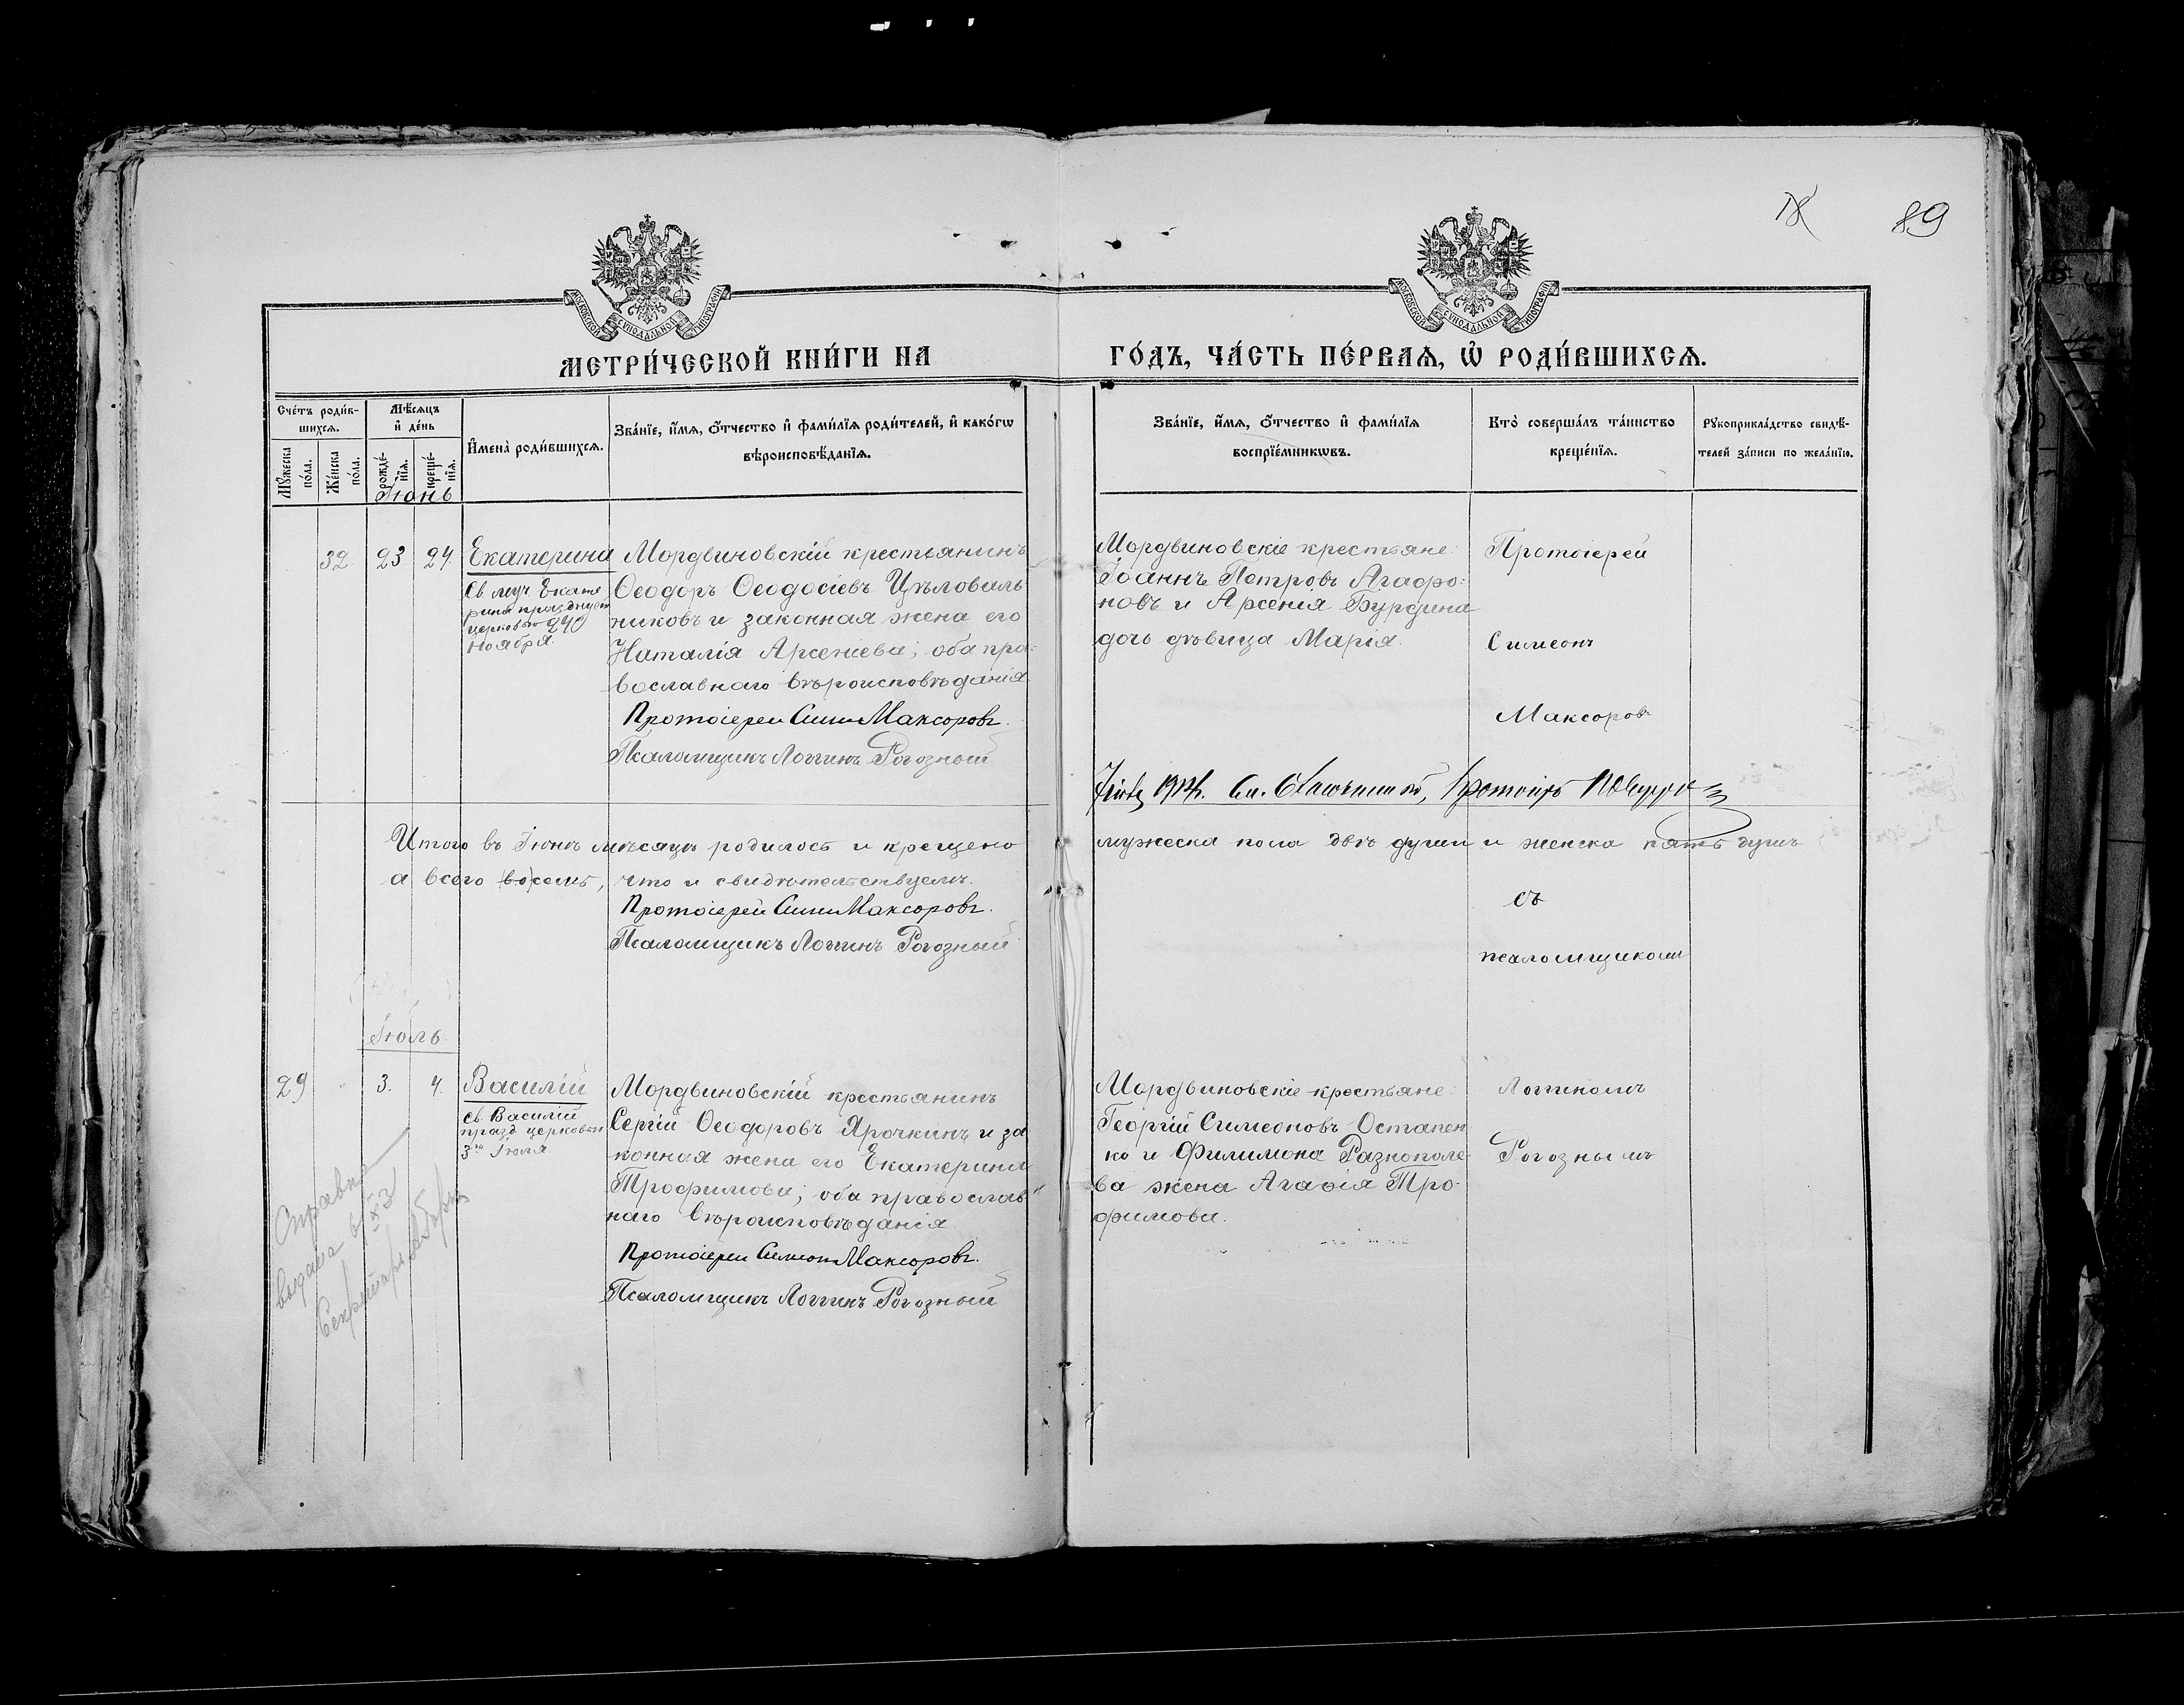 18 89
МОСКОВСКОЙ СѴНОДАЛЬНОЙ ТИПОГРАФІИ
МОСКОВСКОЙ СѴНОДАЛЬНОЙ ТИПОГРАФІИ
МЕТРИ́ЧЕСКОЙ КНИ́ГИ НА ГО́ДЪ, ЧА́СТЬ ПЕ́РВАѦ, Ѡ҆ РОДИ́ВШИХСѦ.
Сче́тъ роди́в-
шихсѧ.
Мꙋ́жеска по́ла.
Же́нска по́ла.
Мѣ́сѧцъ
и҆ де́нь
рожде́-
нїѧ.
креще́-
нїѧ.
И҆мена̀ роди́вшихсѧ.
Зва́нїе, и҆́мѧ, ѻ҆́тчество и҆ фами́лїѧ роди́телей, и҆ како́гѡ
вѣроисповѣ́данїѧ.
Зва́нїе, и҆́мѧ, ѻ҆́тчество и҆ фами́лїѧ
воспрїе́мникѡвъ.
Кто̀ соверша́лъ та́инство
креще́нїѧ.
Рꙋкоприкла́дство свидѣ́-
телей за́писи по жела́нїю.
Іюнь
32 23 24. Екатерина
Св муч Екате
рина празднует
церковью 24го
Ноября.
Мордвиновскій крестьянинъ
Ѳеодоръ Ѳеодосіевъ Цѣловаль
никовъ и законная жена его
Наталія Арсеніева; оба пра-
вославнаго вѣроисповѣданія
Протоіерей Симеонъ Максоровъ.
Псаломщикъ Логгинъ Рогозный
Мордвиновскіе крестьяне:
Іоаннъ Петровъ Агафо-
новъ и Арсенія Бурдина
дочь дѣвица Марія.
Протоіерей
Симеонъ
Максоровъ
1914г.
Итого въ Іюнѣ мѣсяцѣ родилось и крещено мужеска пола двѣ души и женска пять душъ
а всего (во)семь, что и свидѣтельствуемъ.
Протоіерей Симеонъ Максоровъ.
Псаломщикъ Логгинъ Рогозный
съ
псаломщикомъ
Іюль.
29 3. 4. Василій
Св. Василій
празд церковью
3го Іюля
Мордвиновскій крестьянинъ
Сергій Ѳеодоровъ Ярочкинъ и за
конная жена его Екатерина
Трофимова; оба православ
наго вѣроисповѣданія
Протоіерей Симеонъ Максоровъ.
Псаломщикъ Логгинъ Рогозный
Мордвиновскіе крестьяне:
Георгій Симеоновъ Остапен
ко и Филимона Разнополе-
ва жена Агафія Тро-
фимова.
Логгиномъ
Рогознымъ
Справка
выдана в
Секретарь